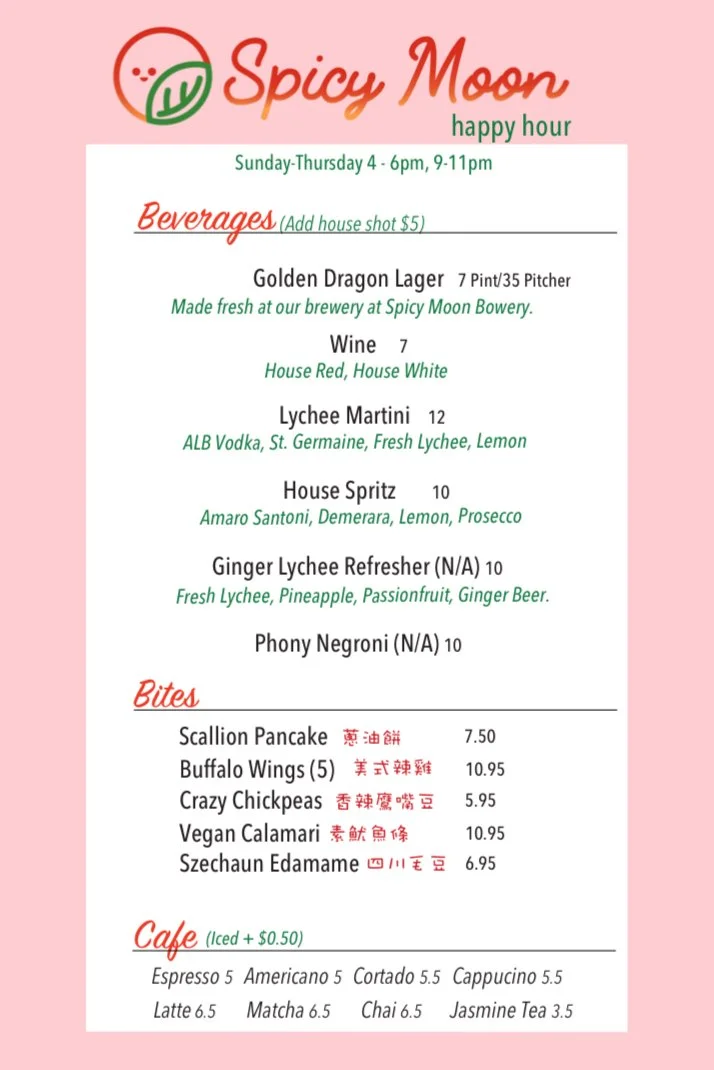 Spicy Moon
happy hour
Sunday-Thursday 4 - 6pm, 9-11pm
Beverages (Add house shot $5)
Golden Dragon Lager 7 Pint/35 Pitcher
Made fresh at our brewery at Spicy Moon Bowery.
Wine 7
House Red, House White
Lychee Martini 12
ALB Vodka, St. Germaine, Fresh Lychee, Lemon
House Spritz 10
Amaro Santoni, Demerara, Lemon, Prosecco
Ginger Lychee Refresher (N/A) 10
Fresh Lychee, Pineapple, Passionfruit, Ginger Beer.
Phony Negroni (N/A) 10
Bites
Scallion Pancake 蔥油餅 7.50
Buffalo Wings (5) 美式辣雞 10.95
Crazy Chickpeas 香辣鷹嘴豆 5.95
Vegan Calamari 素魷魚條 10.95
Szechaun Edamame 四川毛豆 6.95
Cafe (Iced + $0.50)
Espresso 5 Americano 5 Cortado 5.5 Cappucino 5.5
Latte 6.5 Matcha 6.5 Chai 6.5 Jasmine Tea 3.5